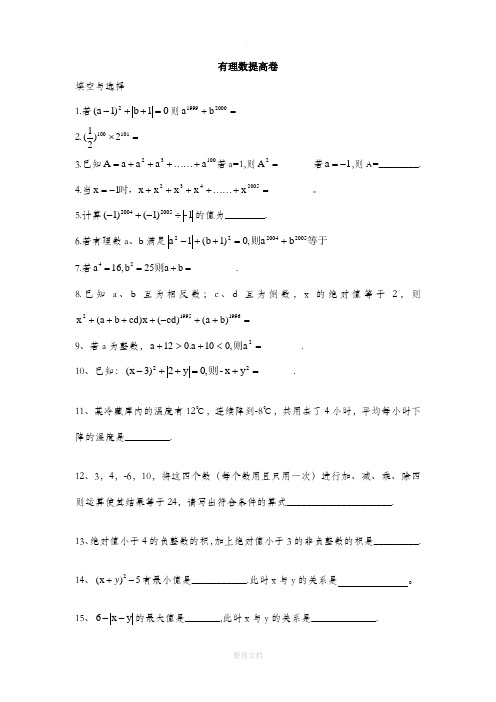 有理数提高卷
填空与选择
1.若(a-1)²+|b+1|=0则a¹⁹⁹⁹+b²⁰⁰⁰=
2.(1/2)¹⁰⁰×2¹⁰¹=
3.已知A=a+a²+a³+……+a¹⁰⁰若a=1,则A²=________若a=-1,则A=________.
4.当x=-1时，x+x²+x³+x⁴+……+x²⁰⁰⁵=________。
5.计算(-1)²⁰⁰⁴+(-1)²⁰⁰⁵÷|-1|的值为________.
6.若有理数a、b满足|a²-1|+(b+1)²=0,则a²⁰⁰⁴+b²⁰⁰⁵等于
7.若a⁴=16,b²=25则a+b=________.
8.已知a、b互为相反数；c、d互为倒数，x的绝对值等于2，则
x²+(a+b+cd)x+(-cd)¹⁹⁹⁵+(a+b)¹⁹⁹⁶=
9、若a为整数，a+12>0.a+10<0,则a²=________.
10、已知：(x-3)²+|2+y|=0,则-x+y²=________.
11、某冷藏库内的温度有12℃，连续降到-8℃，共用去了4小时，平均每小时下
降的温度是_________.
12、3，4，-6，10，将这四个数（每个数用且只用一次）进行加、减、乘、除四
则运算使其结果等于24，请写出符合条件的算式_____________________.
13、绝对值小于4的负整数的积，加上绝对值小于3的非负整数的积是_________.
14、(x+y)²-5有最小值是___________.此时x与y的关系是________。
15、6-|x-y|的最大值是_______,此时x与y的关系是_____________.
整理文档